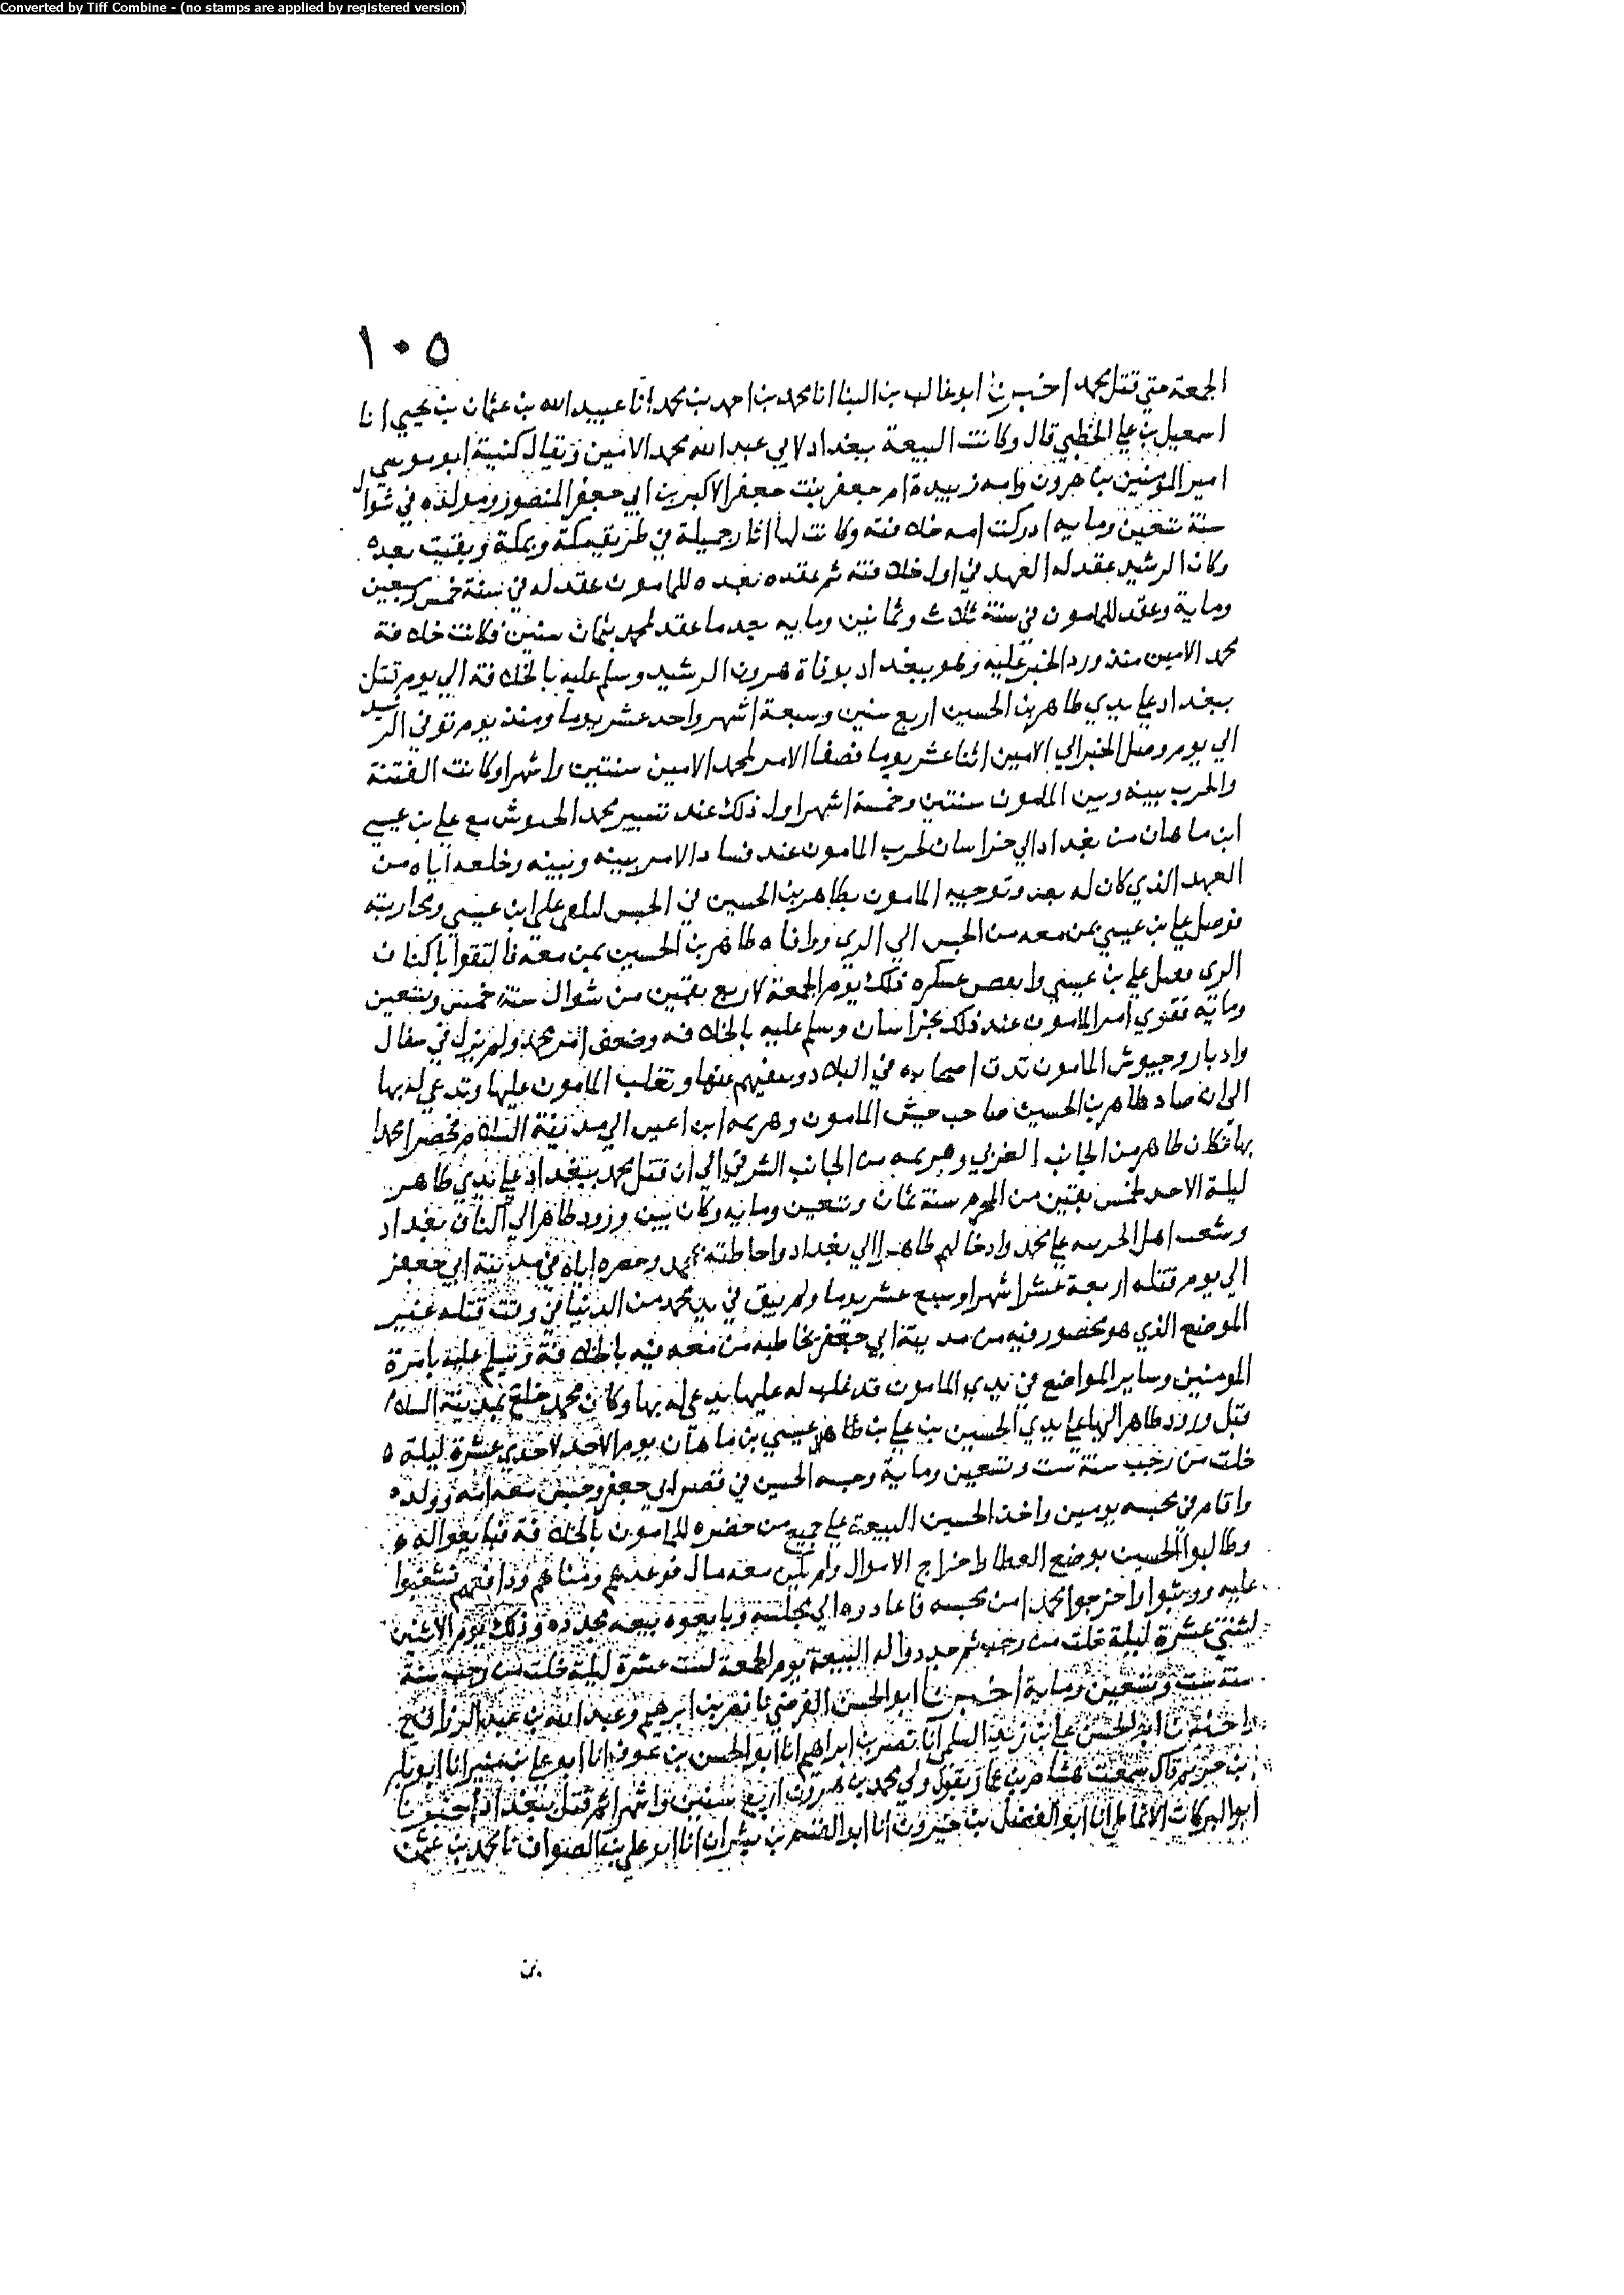 Converted by Tiff Combine - (no stamps are applied by registered version)
١٠٥
الجمعة متي قتل محمد اخبرنا ابو غالب بن البنا انا محمد بن احمد بن محمد انا عبيد الله بن عثمان بن يحيي انا
اسمعيل بن علي الخطبي قال وكانت البيعة ببغداد لابي عبد الله محمد الامين ويقال كنيته ابو موسي
امير المؤمنين بن هرون وامه زبيدة ام جعفر بنت جعفر الاكبر بن ابي جعفر المنصور ومولده في شوال
سنة سبعين ومايه ادركت امه خلافته وكانت لها اثار جميلة في طريق مكة وبمكة وبقيت بعده
وكان الرشيد عقد له العهد في اول خلافته ثم عقده بعده للمامون عقد له في سنة خمس وسبعين
وماية وعقد للمامون في سنة ثلاث وثمانين ومايه بعد ما عقد لمحمد بثمان سنين فكانت خلافة
محمد الامين منذ ورد الخبر عليه وهو ببغداد بوفاة هرون الرشيد وسلم عليه بالخلافة الي يوم قتل
ببغداد علي يدي طاهر بن الحسين اربع سنين وسبعة اشهر واحد عشر يوما ومنذ يوم توفي الرشيد
الي يوم وصل الخبر الي الامين اثنا عشر يوما فصفا الامر لمحمد الامين سنتين واشهرا وكانت الفتنة
والحرب بينه وبين المامون سنتين وخمسة اشهر اول ذلك عند تسيير محمد الجيوش مع علي بن عيسي
ابن ماهان من بغداد الي خراسان لحرب المامون عند فساد الامر بينه وبينه وخلعه اياه من
العهد الذي كان له بعد وتوجيه المامون بطاهر بن الحسين في الجيش للقي علي ابن عيسي ومحاربته
فوصل علي بن عيسي بمن معه من الجيش الي الري ووافاه طاهر بن الحسين بمن معه فالتقوا باكناف
الري فقتل علي بن عيسي وانفض عسكره وذلك يوم الجمعة لاربع بقين من شوال سنة خمس وتسعين
وماية فقوي امر المامون عند ذلك بخراسان وسلم عليه بالخلافه وضعف امر محمد ولم يزل في سفال
وادبار وجيوش المامون تدق اصحابه في البلاد وتنفيهم عنها وتغلب المامون عليها وتدعي له بها
الي ان صار طاهر بن الحسين صاحب جيش المامون وهرثمه ابن اعين الي مدينة السلام فحصرا محمدا
بها فكان طاهر من الجانب الغربي وهرثمه من الجانب الشرقي الي ان قتل محمد ببغداد علي يدي طاهر
ليلة الاحد لخمس بقين من المحرم سنة ثمان وتسعين ومايه وكان بين ورود طاهر الي اكناف بغداد
وشعب اهل الحربيه علي محمد وادخالهم طاهرا الي بغداد واحاطته بمحمد وحصره اياه في مدينة ابي جعفر
الي يوم قتله اربعة عشر اشهرا وسبع عشر يوما ولم يبق في يد محمد من الدنيا في وقت قتله غير
الموضع الذي هو محصور فيه من مدينة ابي جعفر يخاطبه من معه فيه بالخلافة ويسلم عليه بامرة
المومنين وساير المواضع في يدي المامون قد غلب له عليها يدعي له بها وكان محمد خلع بمدينة السلام
قبل ورود طاهر اليها علي يدي الحسين بن علي بن ماهان عيسي بن ماهان يوم الاحد لاحدي عشرة ليلة
خلت من رجب سنة ست وتسعين وماية وحبسه الحسين في قصر ابي جعفر وحبس معه امه وولده
واقام في محبسه يومين واخذ الحسين البيعة علي جميع من حضره للمامون بالخلافة فبايعوا له
وطالبوا الحسين بوضع العطا واخراج الاموال ولم يكن معه مال فوعدهم ومناهم ودافعهم فشغبوا
عليه ووثبوا واخرجوا محمدا من محبسه فاعادوه الي مجلسه وبايعوه بيعه مجدده وذلك يوم الاثنين
لثنتي عشرة ليلة خلت من رجب ثم جددوا له البيعة يوم الجمعة لست عشرة ليلة خلت من رجب سنة
سنة ست وتسعين وماية اخبرنا ابو الحسن الفرضي نا نصر بن ابرهيم وعبد الله بن عبد الرزاق ح
واخبرنا ابو الحسن علي بن زيد السلمي انا نصر بن ابراهيم انا ابو الحسن بن عوف انا ابو علي بن منير انا ابو بكر
بن خريم قال سمعت هشام بن عمار يقول ولي محمد بن هرون اربع سنين واشهرا ثم قتل ببغداد اخبرنا
ابو البركات الانماطي انا ابو الفضل بن خيرون انا ابو القسم بن بشران انا ابو علي بن الصواف نا محمد بن عثمن
بن